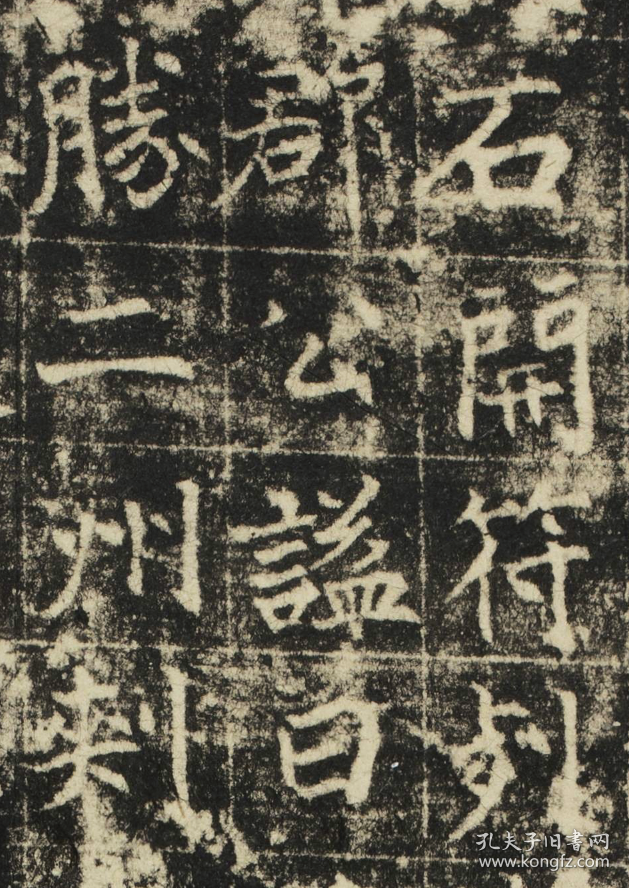 石開符列
郡公謚曰
勝二州刺
孔夫子旧書网
www.kongfz.com